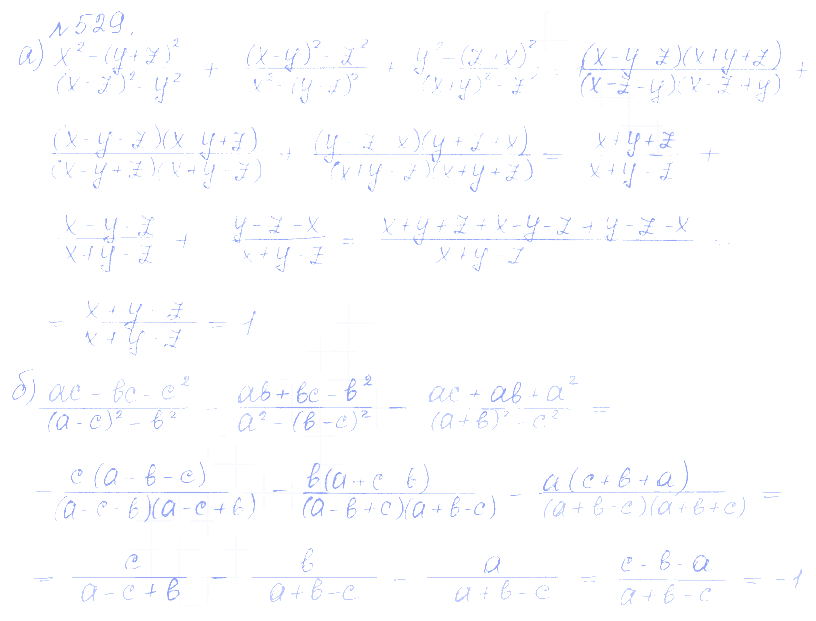 №529.
а) (x² - (y+z)²)/((x-z)² - y²) + ((x-y)² - z²)/(x² - (y-z)²) + (y² - (z+x)²)/((x+y)² - z²) = ((x-y-z)(x+y+z))/((x-z-y)(x-z+y)) +
((x-y-z)(x-y+z))/((x-y+z)(x+y-z)) + ((y-z-x)(y+z+x))/((x+y-z)(x+y+z)) = (x+y+z)/(x+y-z) +
(x-y-z)/(x+y-z) + (y-z-x)/(x+y-z) = (x+y+z+x-y-z+y-z-x)/(x+y-z) =
= (x+y-z)/(x+y-z) = 1
б) (ac - bc - c²)/((a-c)² - b²) - (ab + bc - b²)/(a² - (b-c)²) - (ac + ab + a²)/((a+b)² - c²) =
= (c(a-b-c))/((a-c-b)(a-c+b)) - (b(a+c-b))/((a-b+c)(a+b-c)) - (a(c+b+a))/((a+b-c)(a+b+c)) =
= c/(a-c+b) - b/(a+b-c) - a/(a+b-c) = (c-b-a)/(a+b-c) = -1